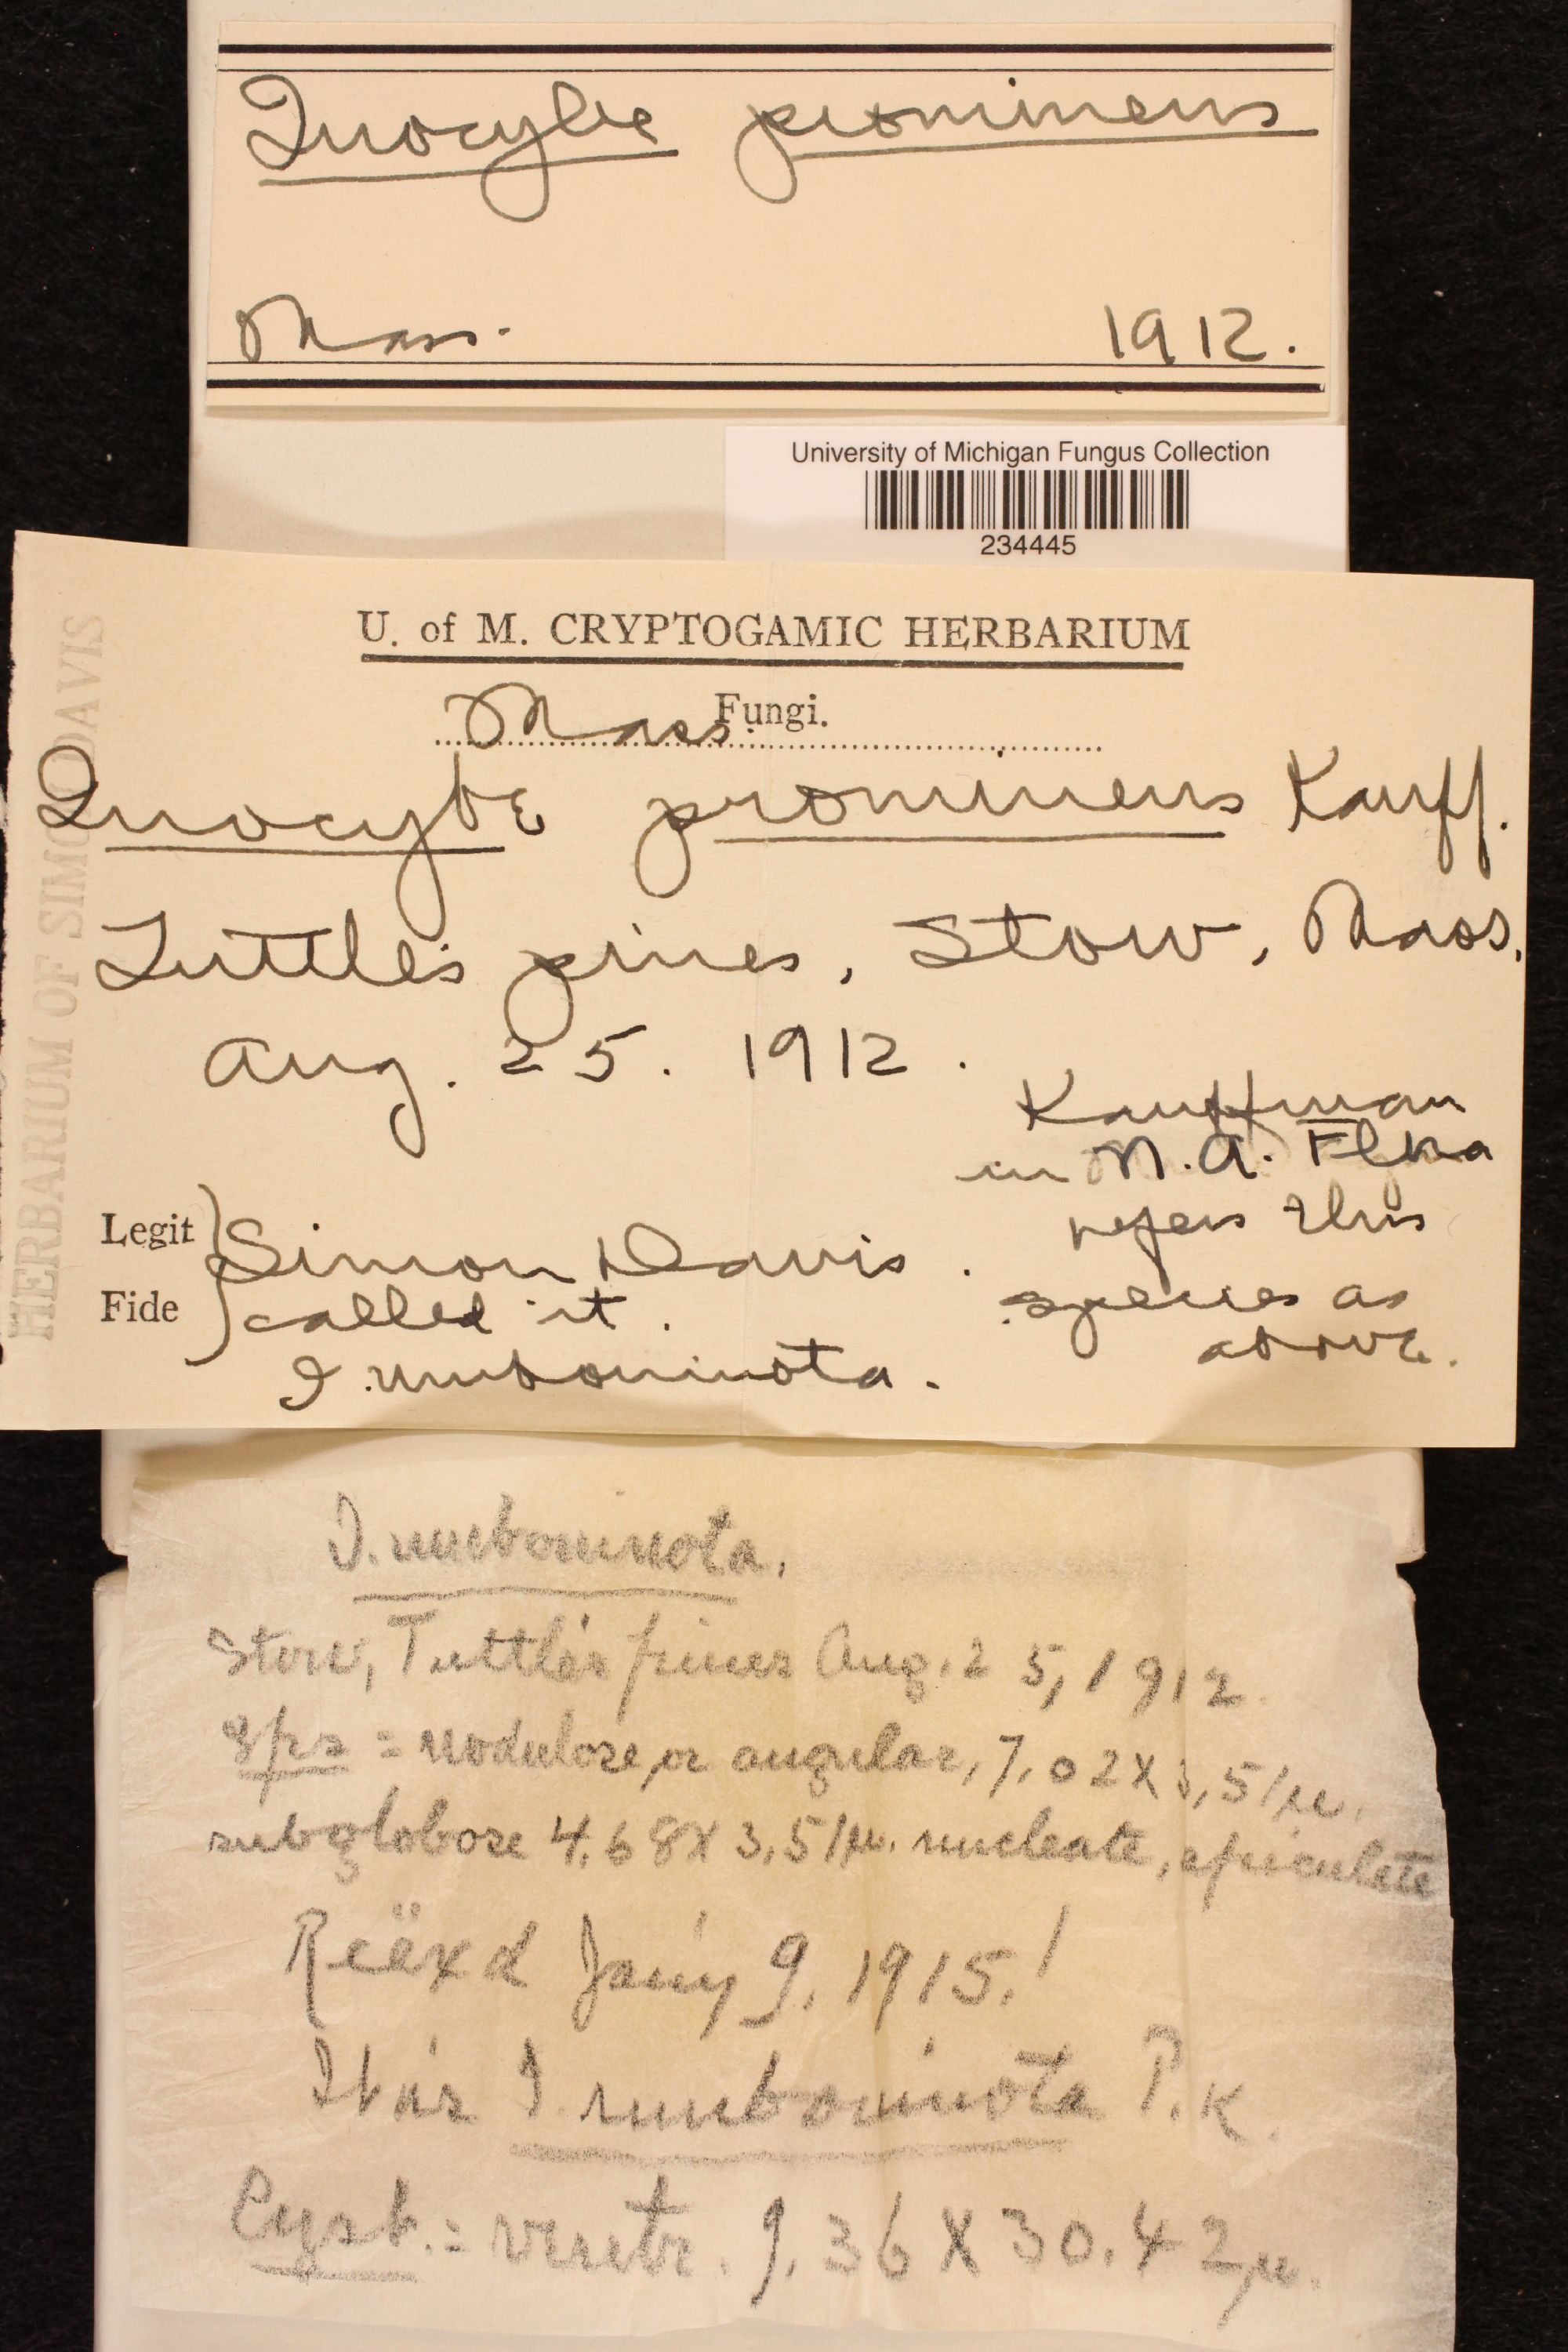 Inocybe prominens
Mass. 1912.
University of Michigan Fungus Collection
234445
HERBARIUM OF SIMON DAVIS
U. of M. CRYPTOGAMIC HERBARIUM
Mass. Fungi.
Inocybe prominens Kauff.
Tuttle's pines, Stow, Mass.
Aug. 25. 1912.
Kauffman
in N.A. Flora
refers this
species as
above.
Legit Simon Davis.
Fide called it
I. umboninota.
I. umboninota.
Stow, Tuttle's pines Aug. 25, 1912.
Sprs = nodulose or angular, 7.02 X 3.51µ.
subglobose 4.68 X 3.51µ. nucleate, apiculate
Reëxd Jan'y 9, 1915!
It is I. umboninota P.K.
Cyst. = ventr. 9.36 X 30.42µ.